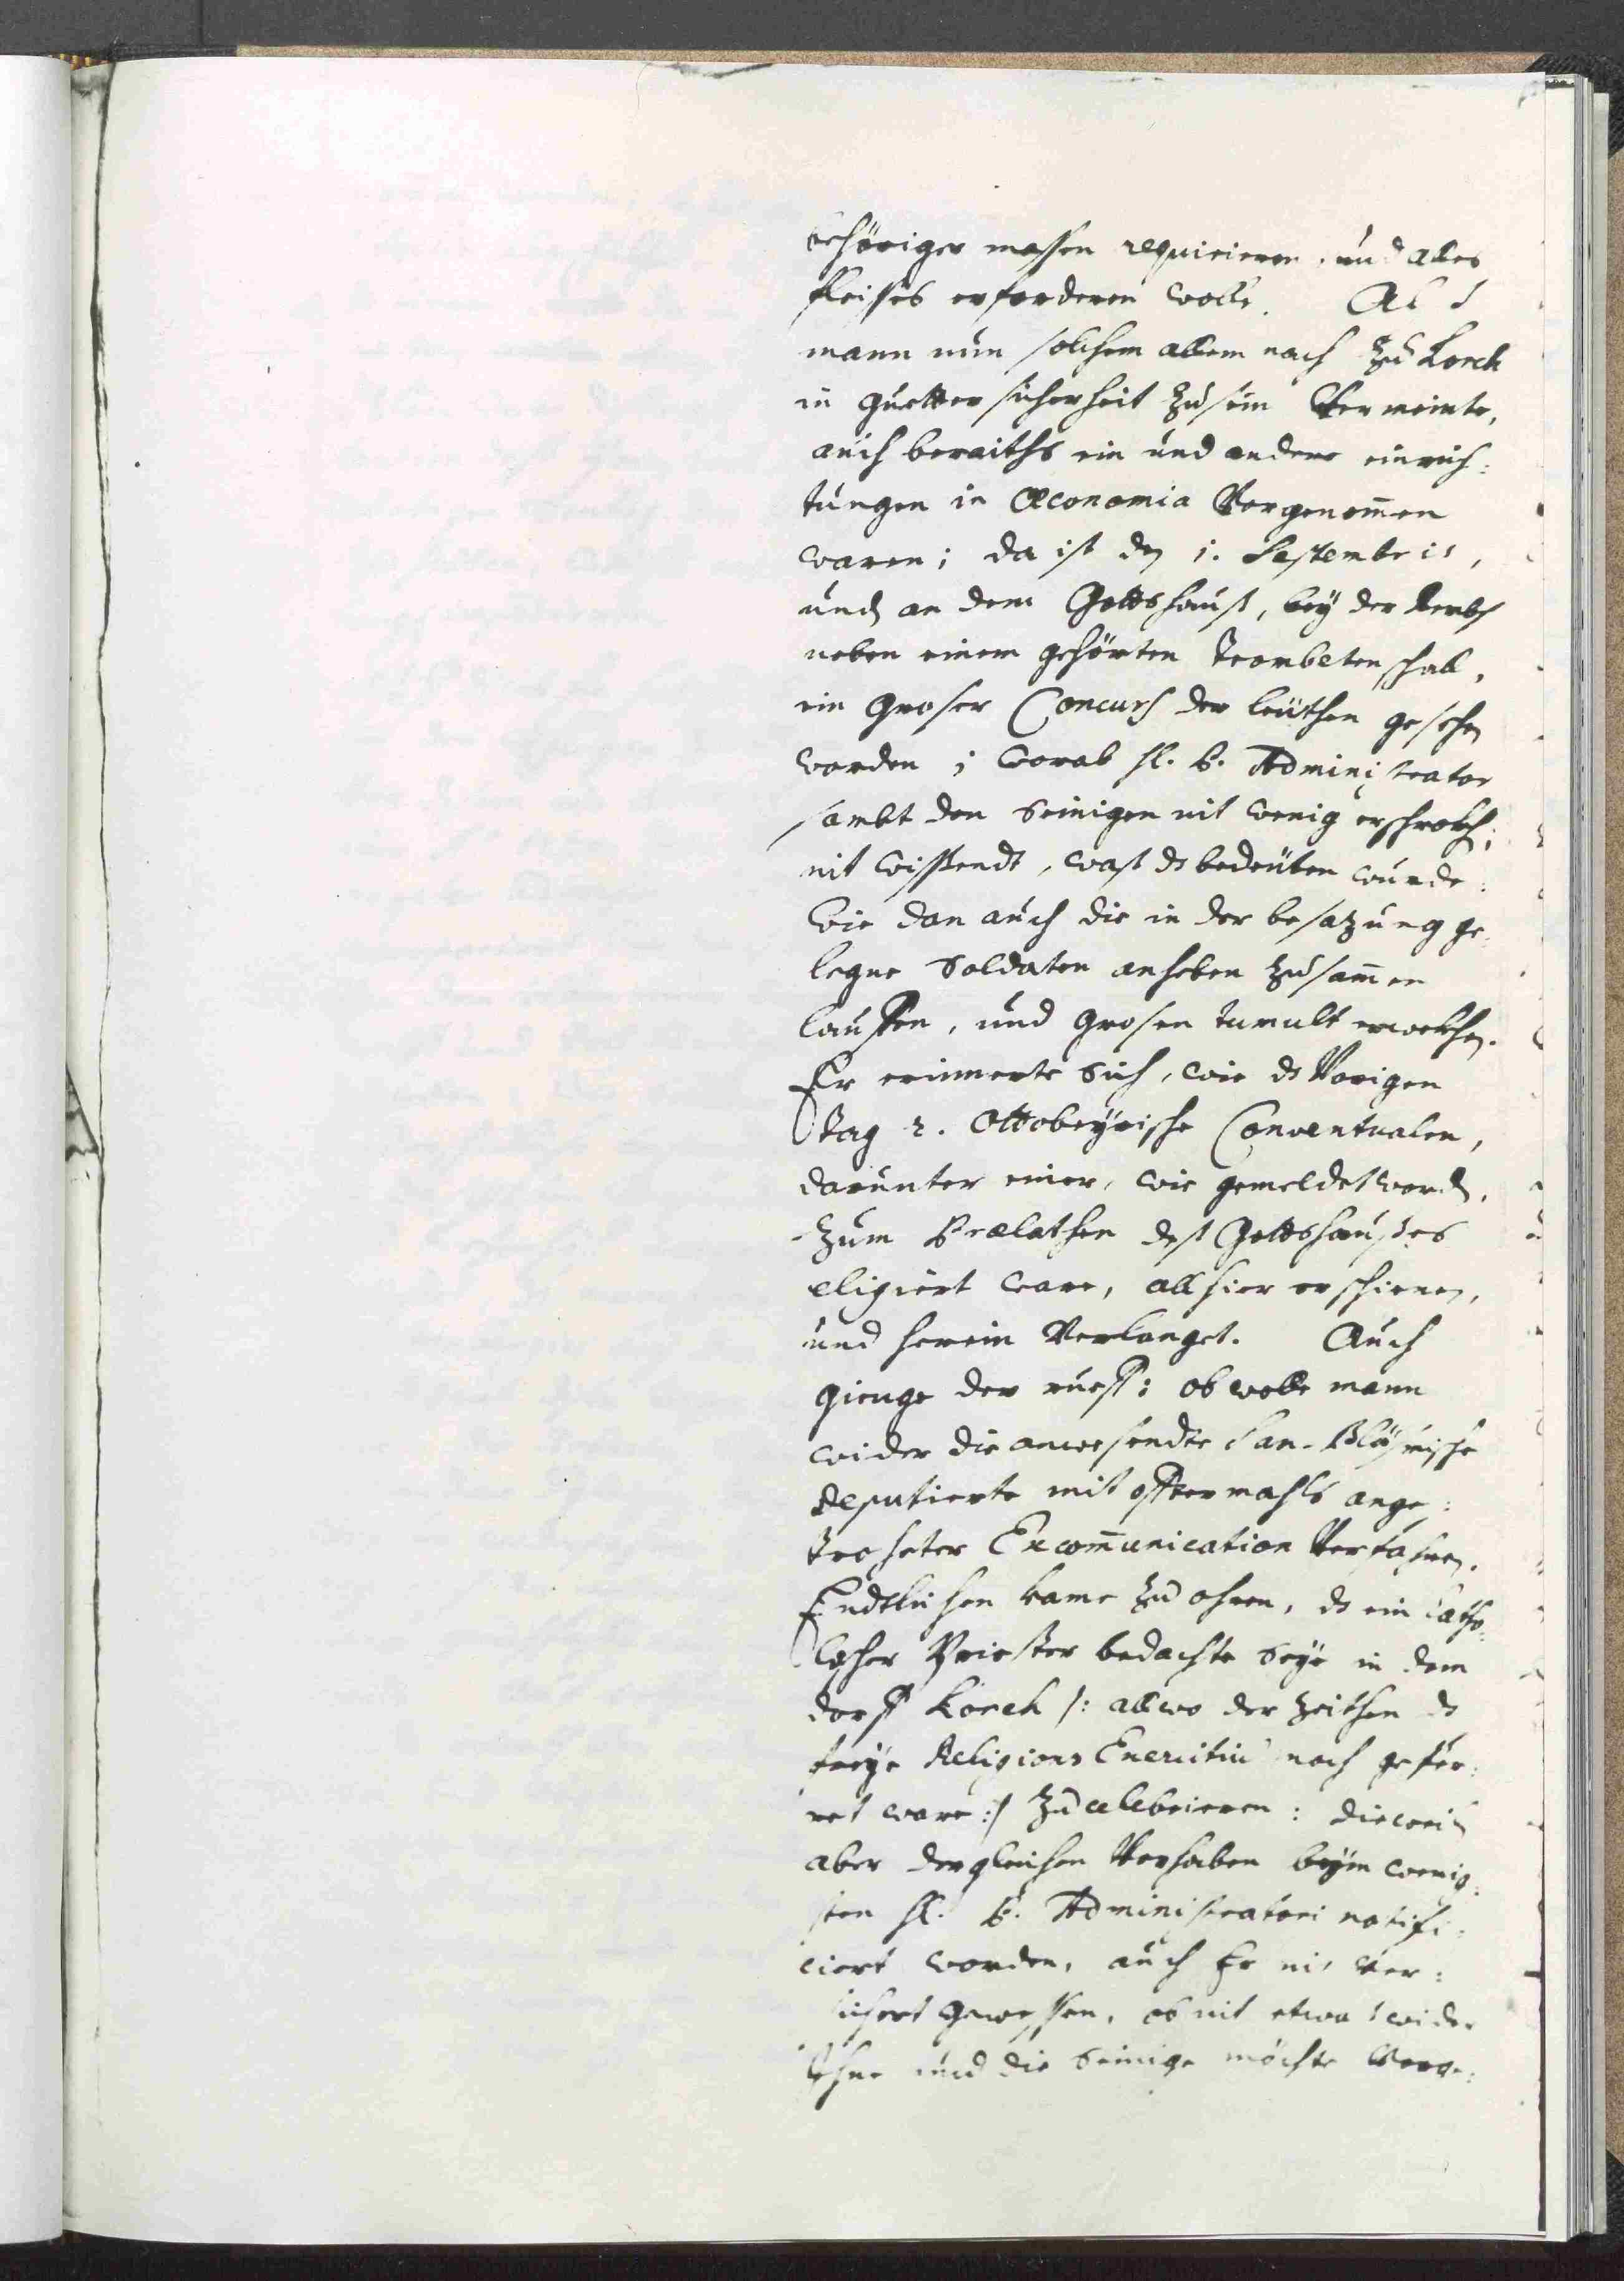 behöriger massen requirieren, und alles
fleisses erforderen wolle. Als
mann nun solchem allem nach zu Lorch
in guetter sicherheit zu sein Vermeinte,
auch beraiths ein und andere einrich:
tungen in Œconomia Vorgenom̄en
waren; da ist den 1. Septembris,
und an dem Gottshauß, bey der
neben einem gehörten Trombeten schall,
ein groser Concurs der leüthen gesehen
worden; worab H. P. Administrator
sambt den Seinigen nit wenig erschrokhen;
nit wissendt, waß ds bedeüten wurde:
Wie dan auch die in der besatzung ge:
legne Soldaten anheben zusam̄en
lauffen, und grosen tumult erwekhen.
Er erinnerte Sich, wie ds Vorigen
Tag 2. Ottobeyrische Conventualen,
darunter einer, wie gemeldet worden,
zum Prælathen deß Gottshaußes
eligiert ware, allhier erschienen,
und herein Verlanget. Auch
gienge der rueff: ob wolle mann
wider die anwesendte San-Blasische
deputierte mit offtermahls ange:
troheter Excom̄unication Verfahren.
Endtlichen kame zu ohren, ds ein Catho:
lischer Priester bedachte Seye in dem
dorff Lorch /: allwo der zeithen ds
freye Religions Exercitiū noch gespör:
ret ware :/ zu celebrieren: dieweil
aber dergleichen Vorhaben beym wenig:
sten H. P. Administratori notifi:
ciert worden, auch Er nit Ver:
sichert gewessen, ob nit etwas wider
Ihne und die Seinige möchte Vorge: